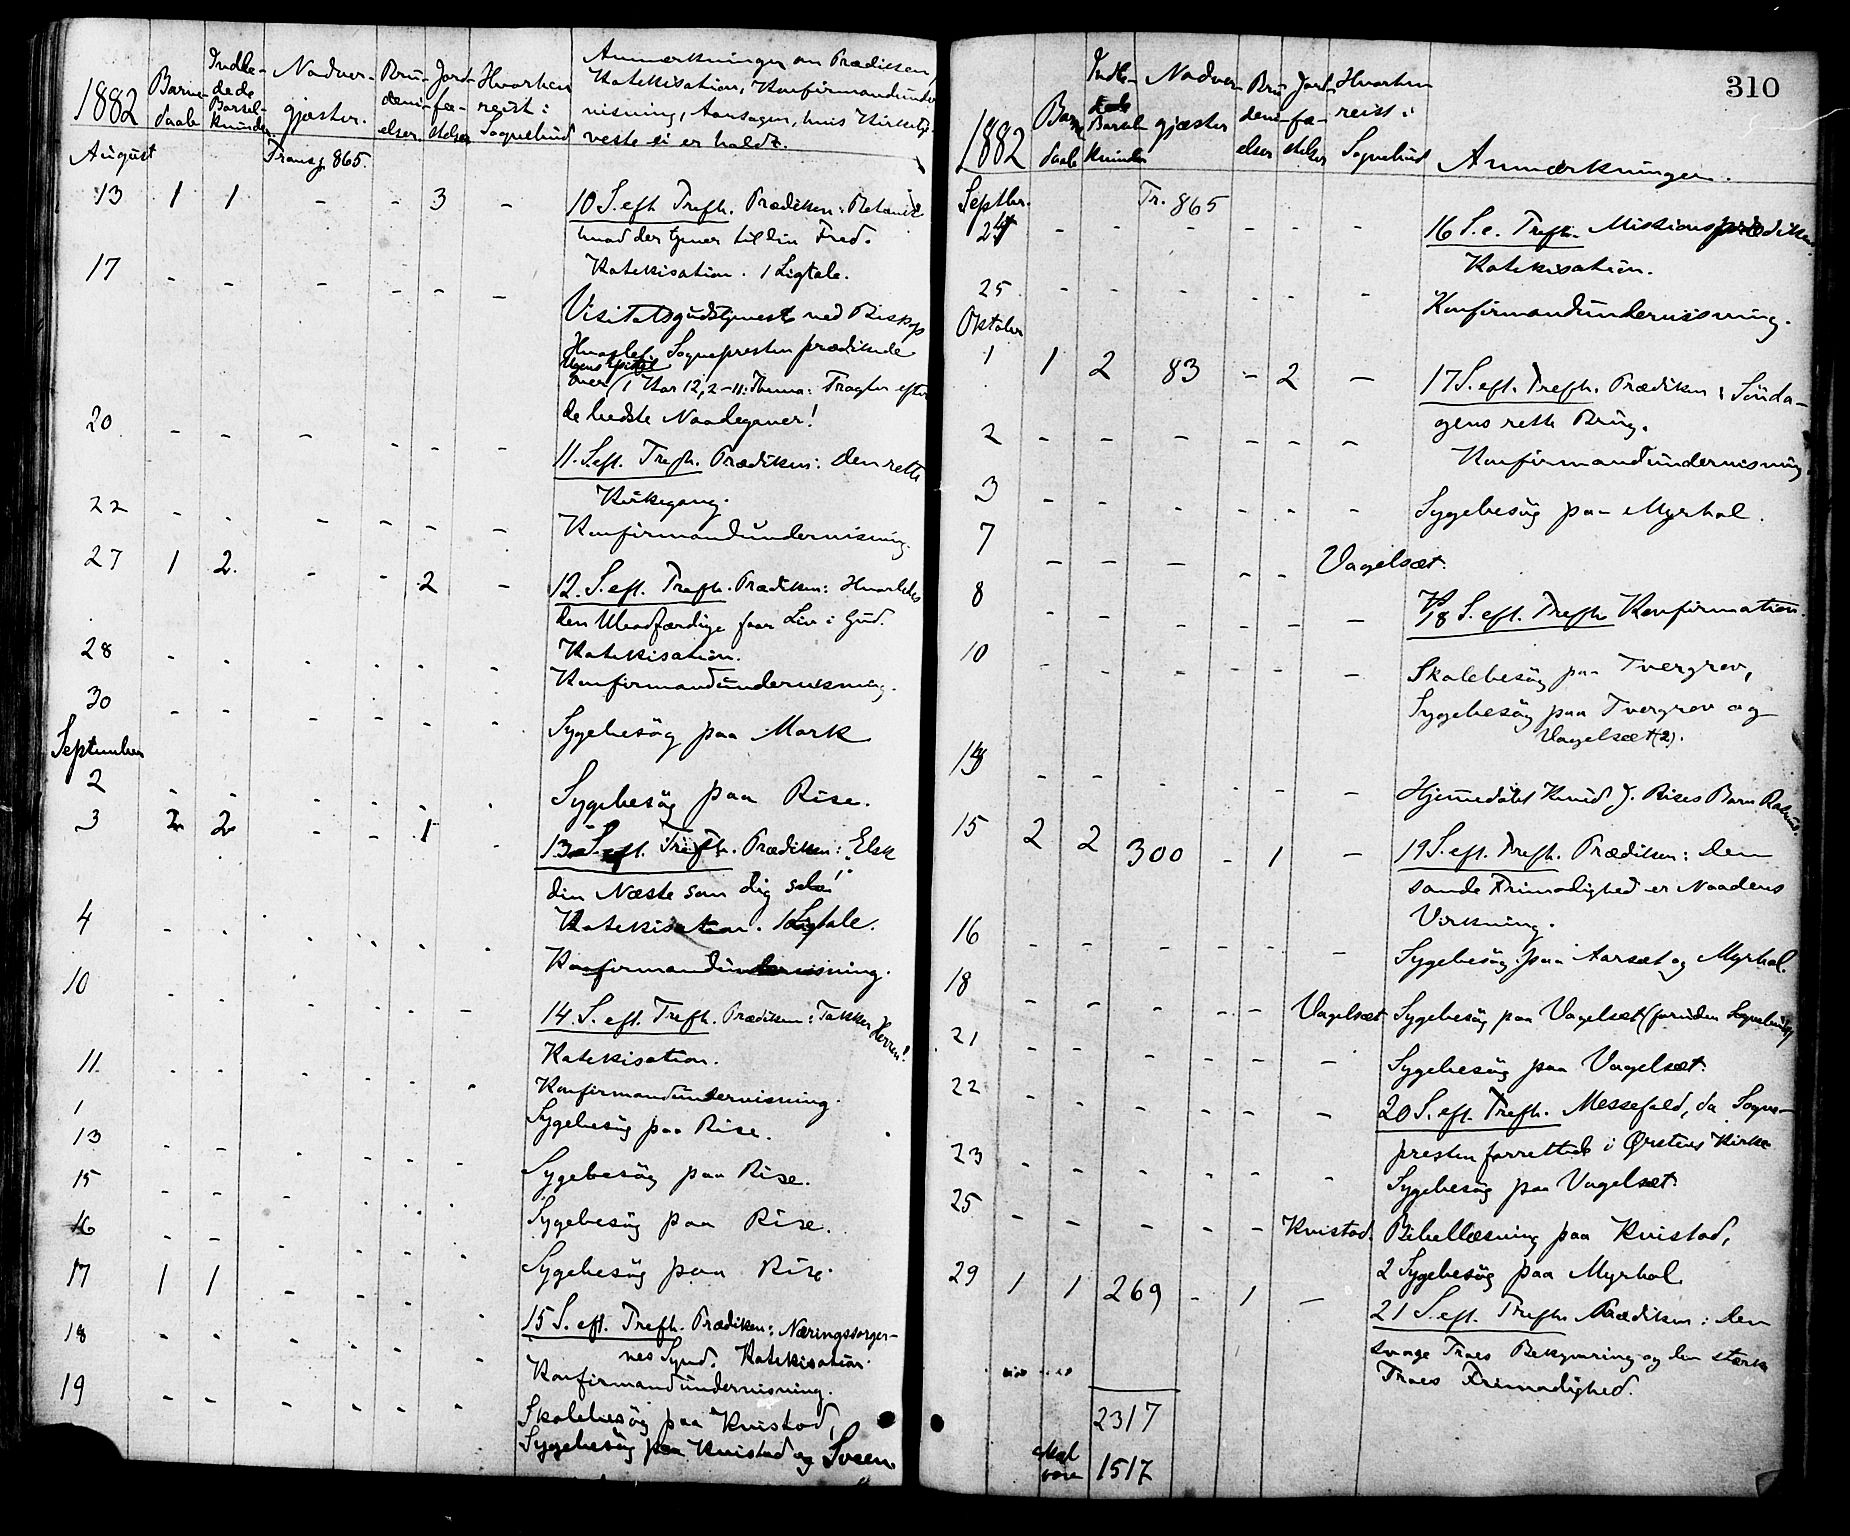 1882
Barne-
daab
Indle-
dede
Barsel-
kvinder
Nadver-
gjæster.
Bru-
devi-
elser
Jord-
fæ-
stelser
Hvorhen
reist i
Sognebud
Anmærkninger om Prædiken,
Katekisation, Konfirmandunder
visning, Aarsager, hvis Kirketje-
neste ei er holdt.
August
Transp. 865.
13 1 1 - - 3 - 10 S. eft. Trefh. Prædiken:
hvad der tjener til din Fred.
Katekisation. 1 Ligtale.
17 - - - - - -
Visitatsgudstjeneste ved Biskop
Hvoslef. Sognepresten prædikede
over 1 Kor 12, 2-11: Thema: Tragter efter
de bedste Naadegaver!
20 - - - - - - 11. S. eft. Trefh. Prædiken: Den rette
Kirkegang.
22 - - - - - - Konfirmandundervisning.
27 1 2 - - 2 - 12. S. eft. Trefh. Prædiken: Hvorledes
den faar Liv i Gud.
Katekisation.
28 - - - - - - Konfirmandundervisning.
30 - - - - - - Sygebesøg paa Mork
September
2 - - - - - - Sygebesøg paa Rise.
3 2 2 - - 1 13 S. eft. Trefh. Prædiken: "Elsk
din Næste som dig selv!"
Katekisation. 1 Ligtale.
4 - - - - - - Konfirmandundervisning.
10 - - - - - - 14. S. eft. Trefh. Prædiken: Takker Herren!
Katekisation.
11. - - - - - - Konfirmandundervisning.
Sygebesøg paa Rise.
13 - - - - - - Sygebesøg paa Rise.
15 - - - - - - Sygebesøg paa Rise.
16 - - - - - - Sygebesøg paa Rise.
17 1 1 - - - - 15 S. eft. Trefh. Prædiken: Næringssorger-
nes Synd. Katekisation.
18 - - - - - - Konfirmandundervisning.
19 - - - - - - Skolebesøg paa Kvistad,
Sygebesøg paa Kvistad og
310
1882
Barne
daab
Indle-
dede
Barsel
kvinder
Nadver
gjæster
Bru
devi-
elser
Jord
fæ-
stelser
Hvorhen
reist i
Sognebud
Anmærkninger.
Septbr.
Tr. 865
24 - - - - - - 16 S. e. Trefh. Missionsprædiken.
Katekisation.
25 - - - - - - Konfirmandundervisning.
Oktober
1 1 2 83 - 2 - 17 S. eft. Trefh. Prædiken: Sönda-
gens rette Brug.
2 - - - - - - Konfirmandundervisning
3 - - - - - - Sygebesøg paa Myrhol.
7 - - - - - Vagelsæt.
8 - - - - - - 18 S. eft. Trefh Konfirmation.
10 - - - - - - Skolebesøg paa Tvergrov,
Sygebesøg paa Tvergrov og
Vagelsæt (2).
13 - - - - - - Hjemmedöbt Knud J. Rises Barn
15 2 2 300 - 1 - 19 S. eft. Trefh. Prædiken: Den
sande Frimodighed er Naadens
Virkning.
16 - - - - - - Sygebesøg paa Aarsæt og Myrhol.
18 - - - - - Vagelsæt Sygebesøg paa Vagelsæt (foruden Sognebud)
21 - - - - - - Sygebesøg paa Vagelsæt
22 - - - - - - 20 S. eft. Trefh. Messefald, da Sogne-
presten forrettede i Ørstens Kirke
23 - - - - - - Sygebesøg paa Vagelsæt
25 - - - - - Kvistad. Bibellæsning paa Kvistad,
2 Sygebesøg paa Myrhol
29 1 1 269 - 1 - 21 S. eft. Trefh Prædiken: Den
svage Troes Bekymring og den stærke
Troes Frimodighed.
2317
1517